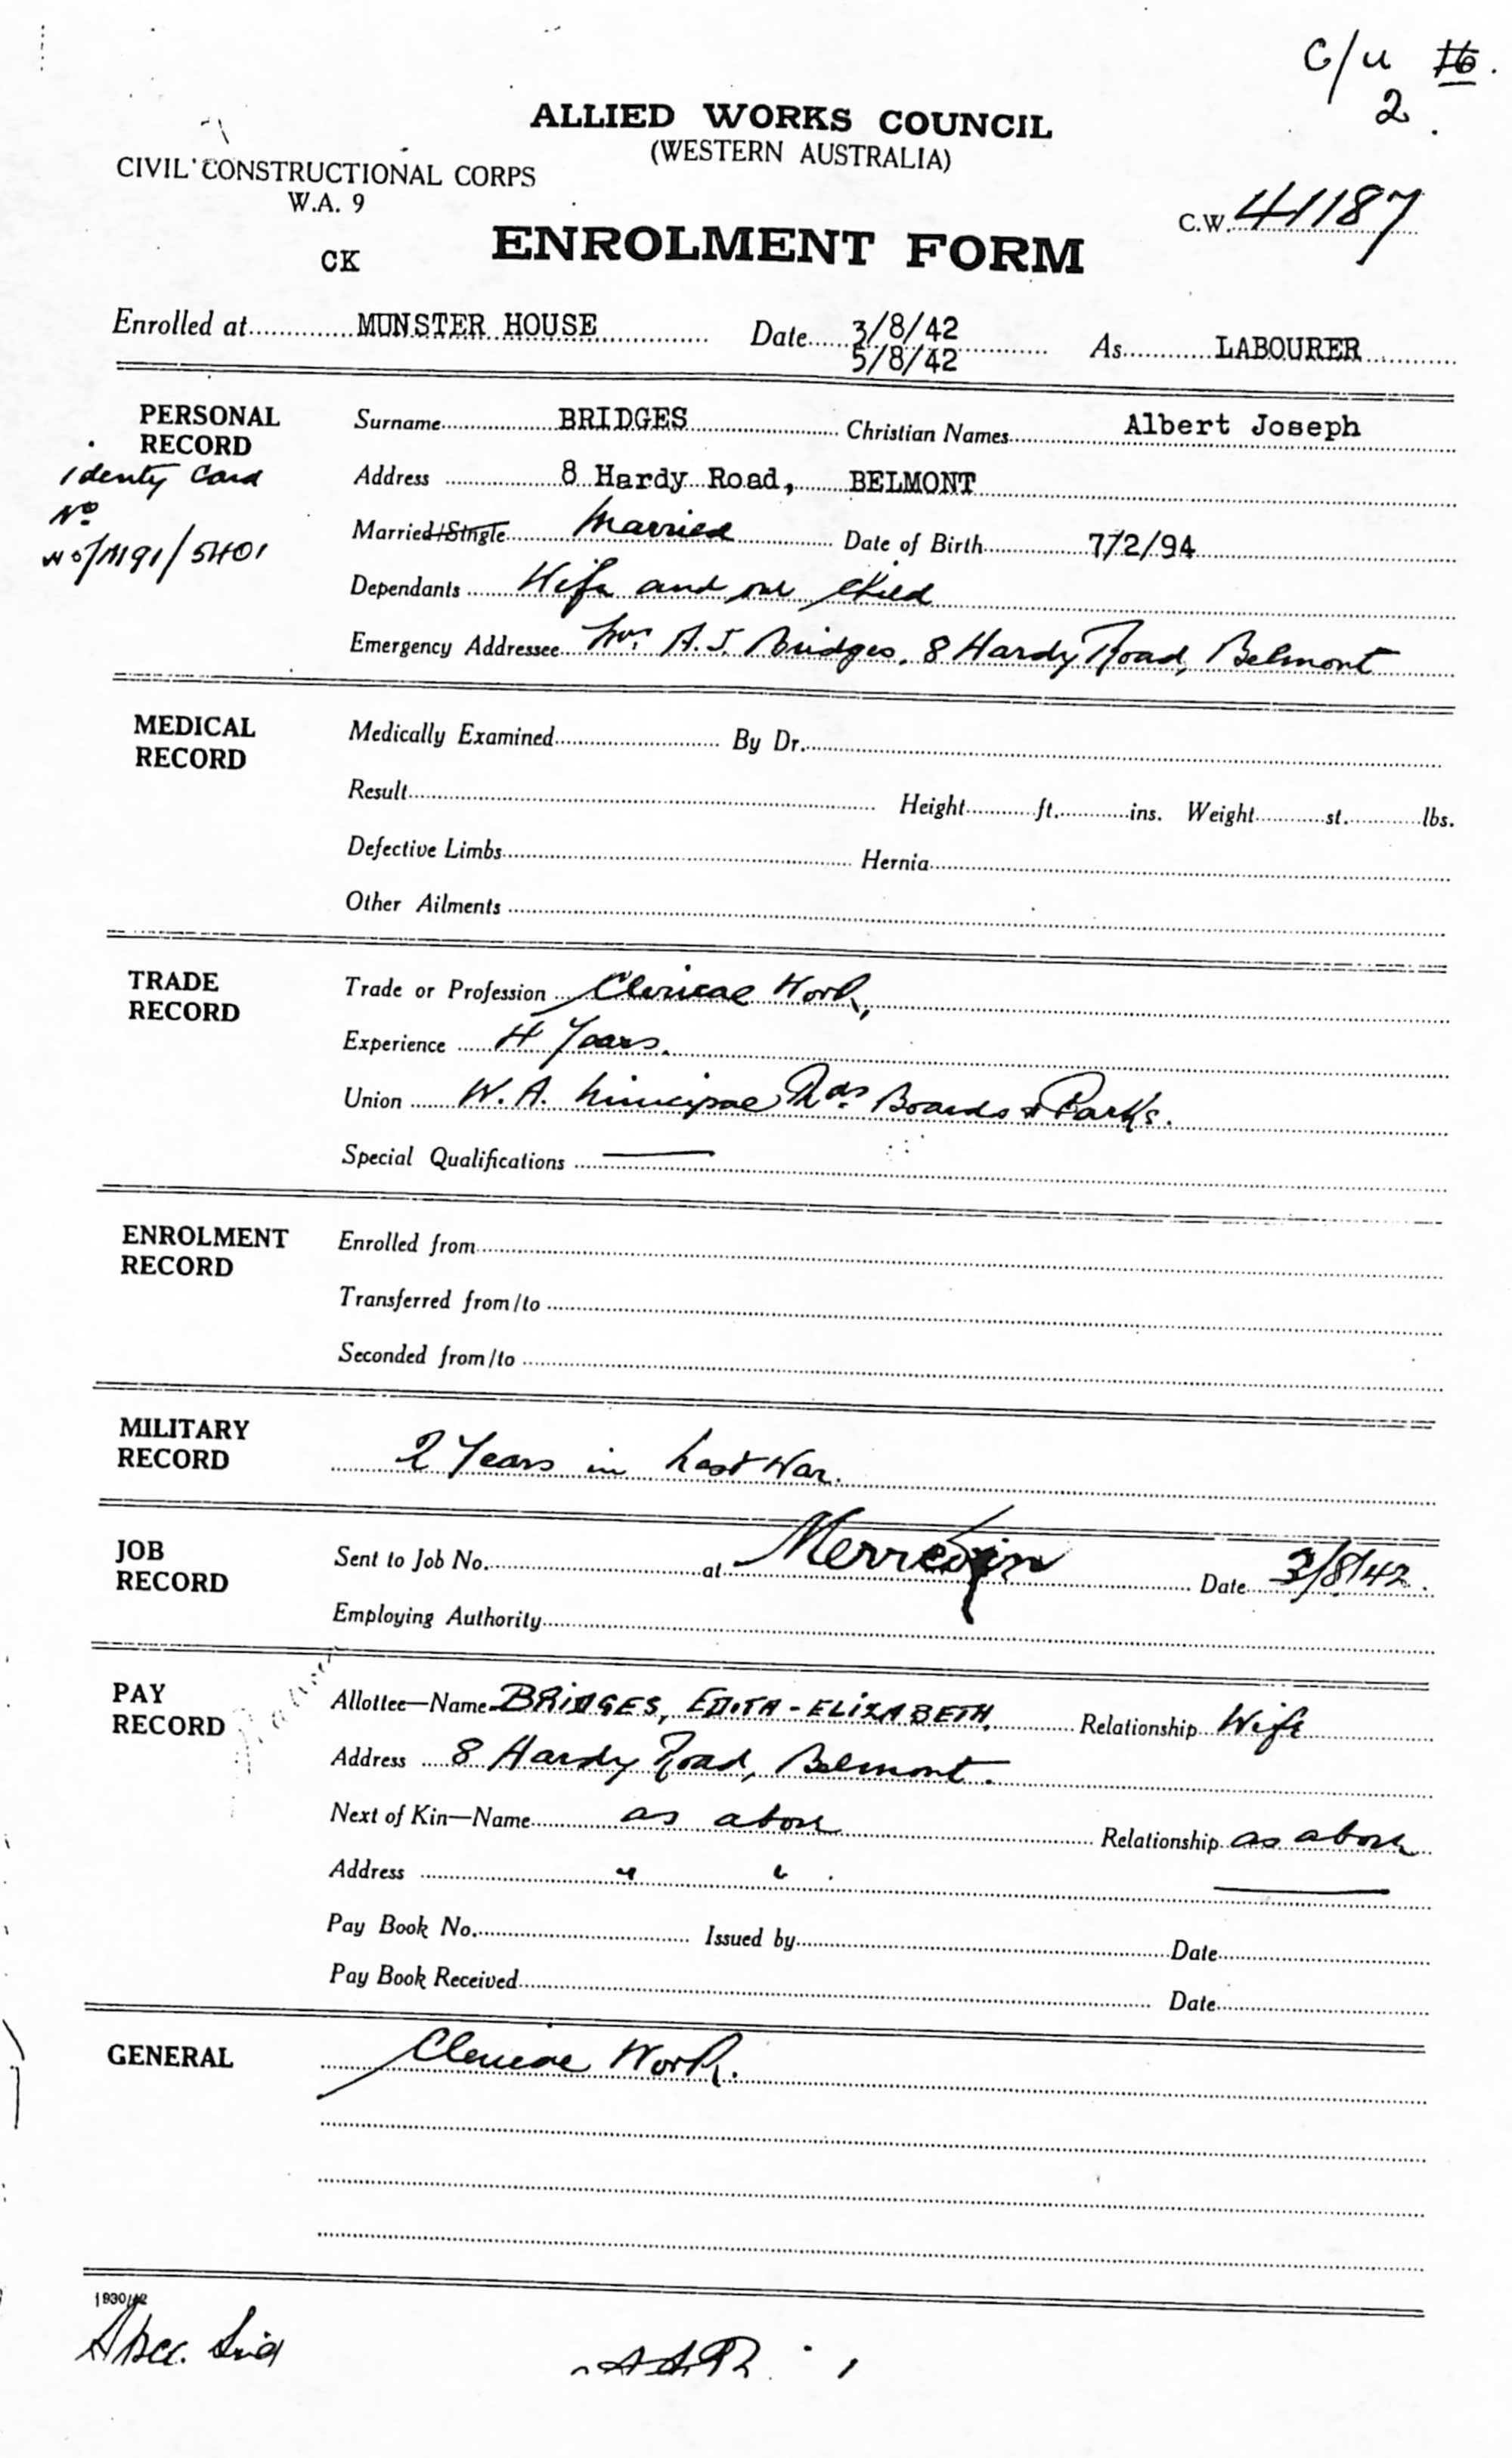 C/u 16.
2.
ALLIED WORKS COUNCIL
(WESTERN AUSTRALIA)
CIVIL CONSTRUCTIONAL CORPS
W.A. 9
C.W. 41187
CK
ENROLMENT FORM
Enrolled at MUNSTER HOUSE Date 3/8/42 As LABOURER
5/8/42
PERSONAL RECORD
Surname BRIDGES Christian Names Albert Joseph
Identy Card
Address 8 Hardy Road, BELMONT
No
Married/Single Married Date of Birth 7/2/94
Dependants Wife and one Child
Emergency Addressee Mrs A.J. Bridges, 8 Hardy Road, Belmont
MEDICAL RECORD
Medically Examined By Dr.
Result Height ft. ins. Weight st. lbs.
Defective Limbs Hernia
Other Ailments
TRADE RECORD
Trade or Profession Clerical Work,
Experience 4 Years.
Union W.A. Municipal Rds Boards & Parks.
Special Qualifications —
ENROLMENT RECORD
Enrolled from
Transferred from/to
Seconded from/to
MILITARY RECORD
2 Years in Last War.
JOB RECORD
Sent to Job No. at Merredin Date 3/8/42.
Employing Authority
PAY RECORD
Allottee—Name BRIDGES, EDITH-ELIZABETH. Relationship Wife
Address 8 Hardy Road, Belmont.
Next of Kin—Name as above Relationship as above
Address " "
Pay Book No. Issued by Date
Pay Book Received Date
GENERAL
Clerical Work.
1930/42